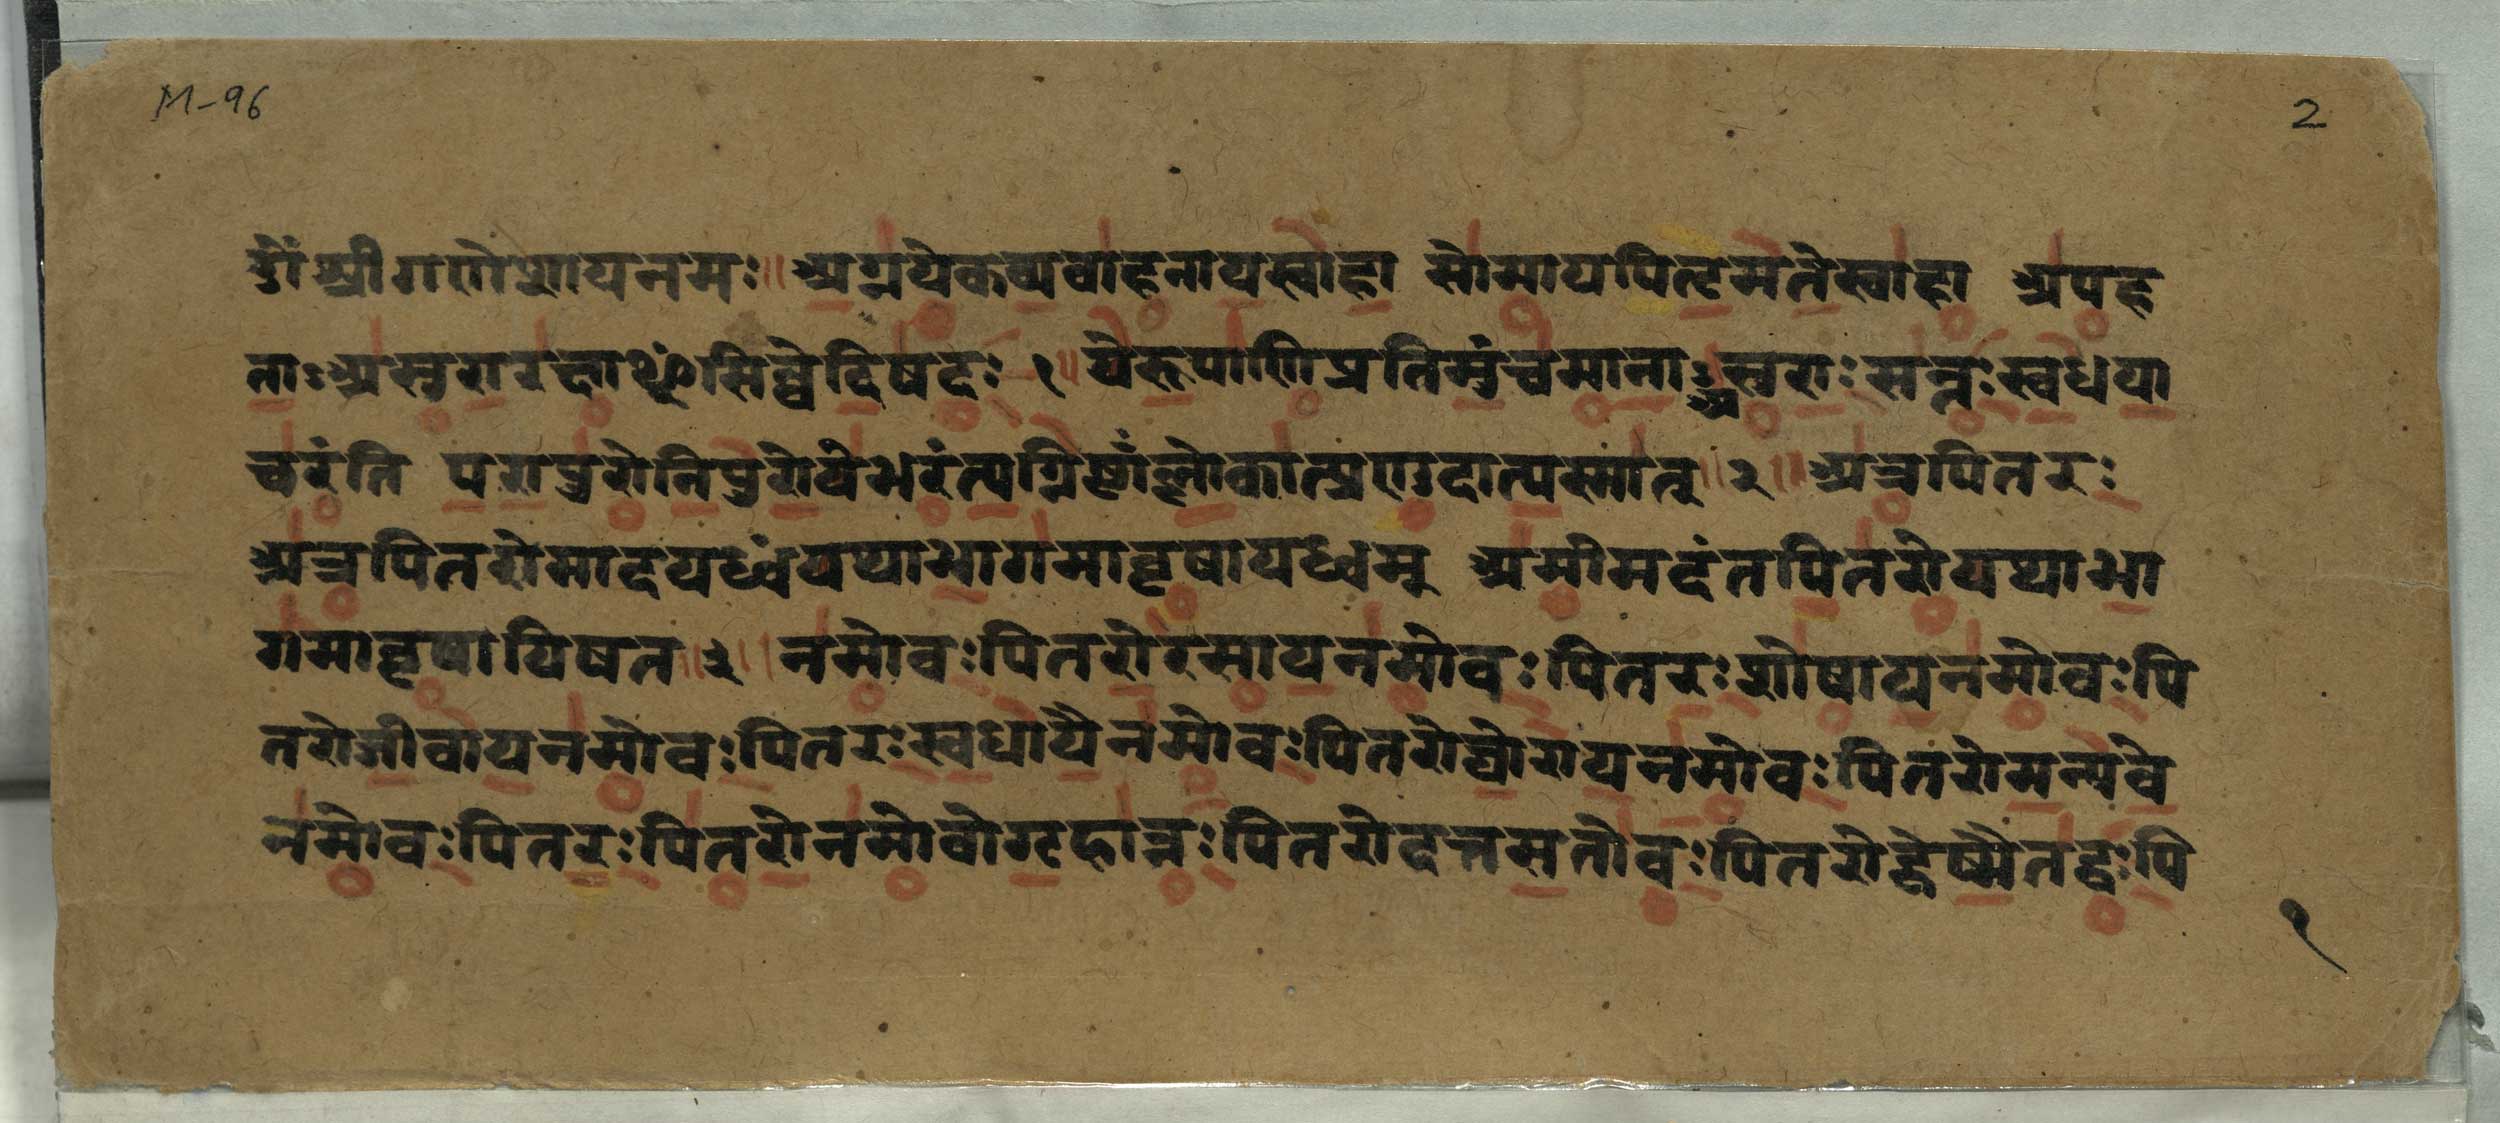 M-96
2
ॐ श्रीगणेशायनमः ॥ अग्नयेकव्यवाहनायस्वाहा सोमायपितृमतेस्वाहा अपह
ताःअसुरारक्षाꣳसिव्वेदिषदः १॥ येरूपाणिप्रतिमुंचमानाअसुराःसन्तःस्वधया
चरंति परापुरोनिपुरोयेभरंत्यग्निष्टाँल्लोकात्प्रणुदात्यस्मात् ॥ २ ॥ अत्रपितरः
अत्रपितरोमादयध्वंयथाभागमावृषायध्वम् अमीमदंतपितरोयथाभा
गमावृषायिषत ॥ ३ ॥ नमोवःपितरोरसायनमोवःपितरःशोषायनमोवःपि
तरोजीवायनमोवःपितरःस्वधायैनमोवःपितरोघोरायनमोवःपितरोमन्यवे
नमोवःपितरःपितरोनमोवोगृहान्नःपितरोदत्तसतोवःपितरोद्देष्मैतद्वःपि
१